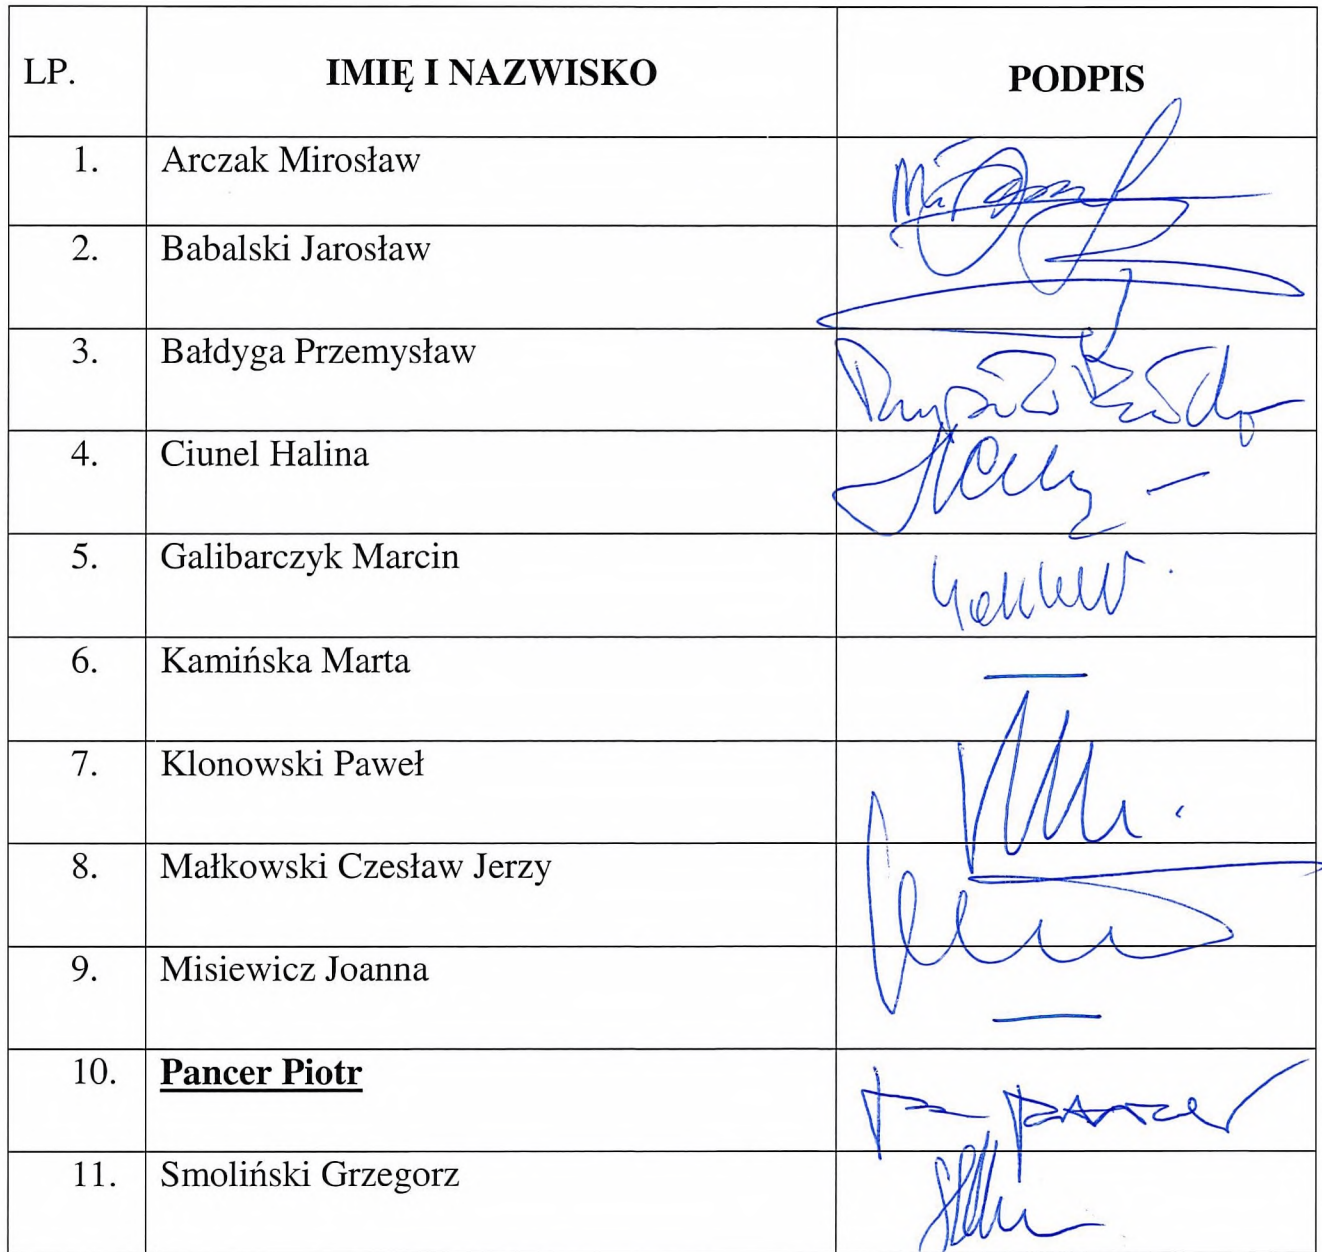 LP. IMIĘ I NAZWISKO PODPIS
1. Arczak Mirosław
2. Babalski Jarosław
3. Bałdyga Przemysław
4. Ciunel Halina
5. Galibarczyk Marcin
6. Kamińska Marta —
7. Klonowski Paweł
8. Małkowski Czesław Jerzy
9. Misiewicz Joanna —
10. Pancer Piotr
11. Smoliński Grzegorz